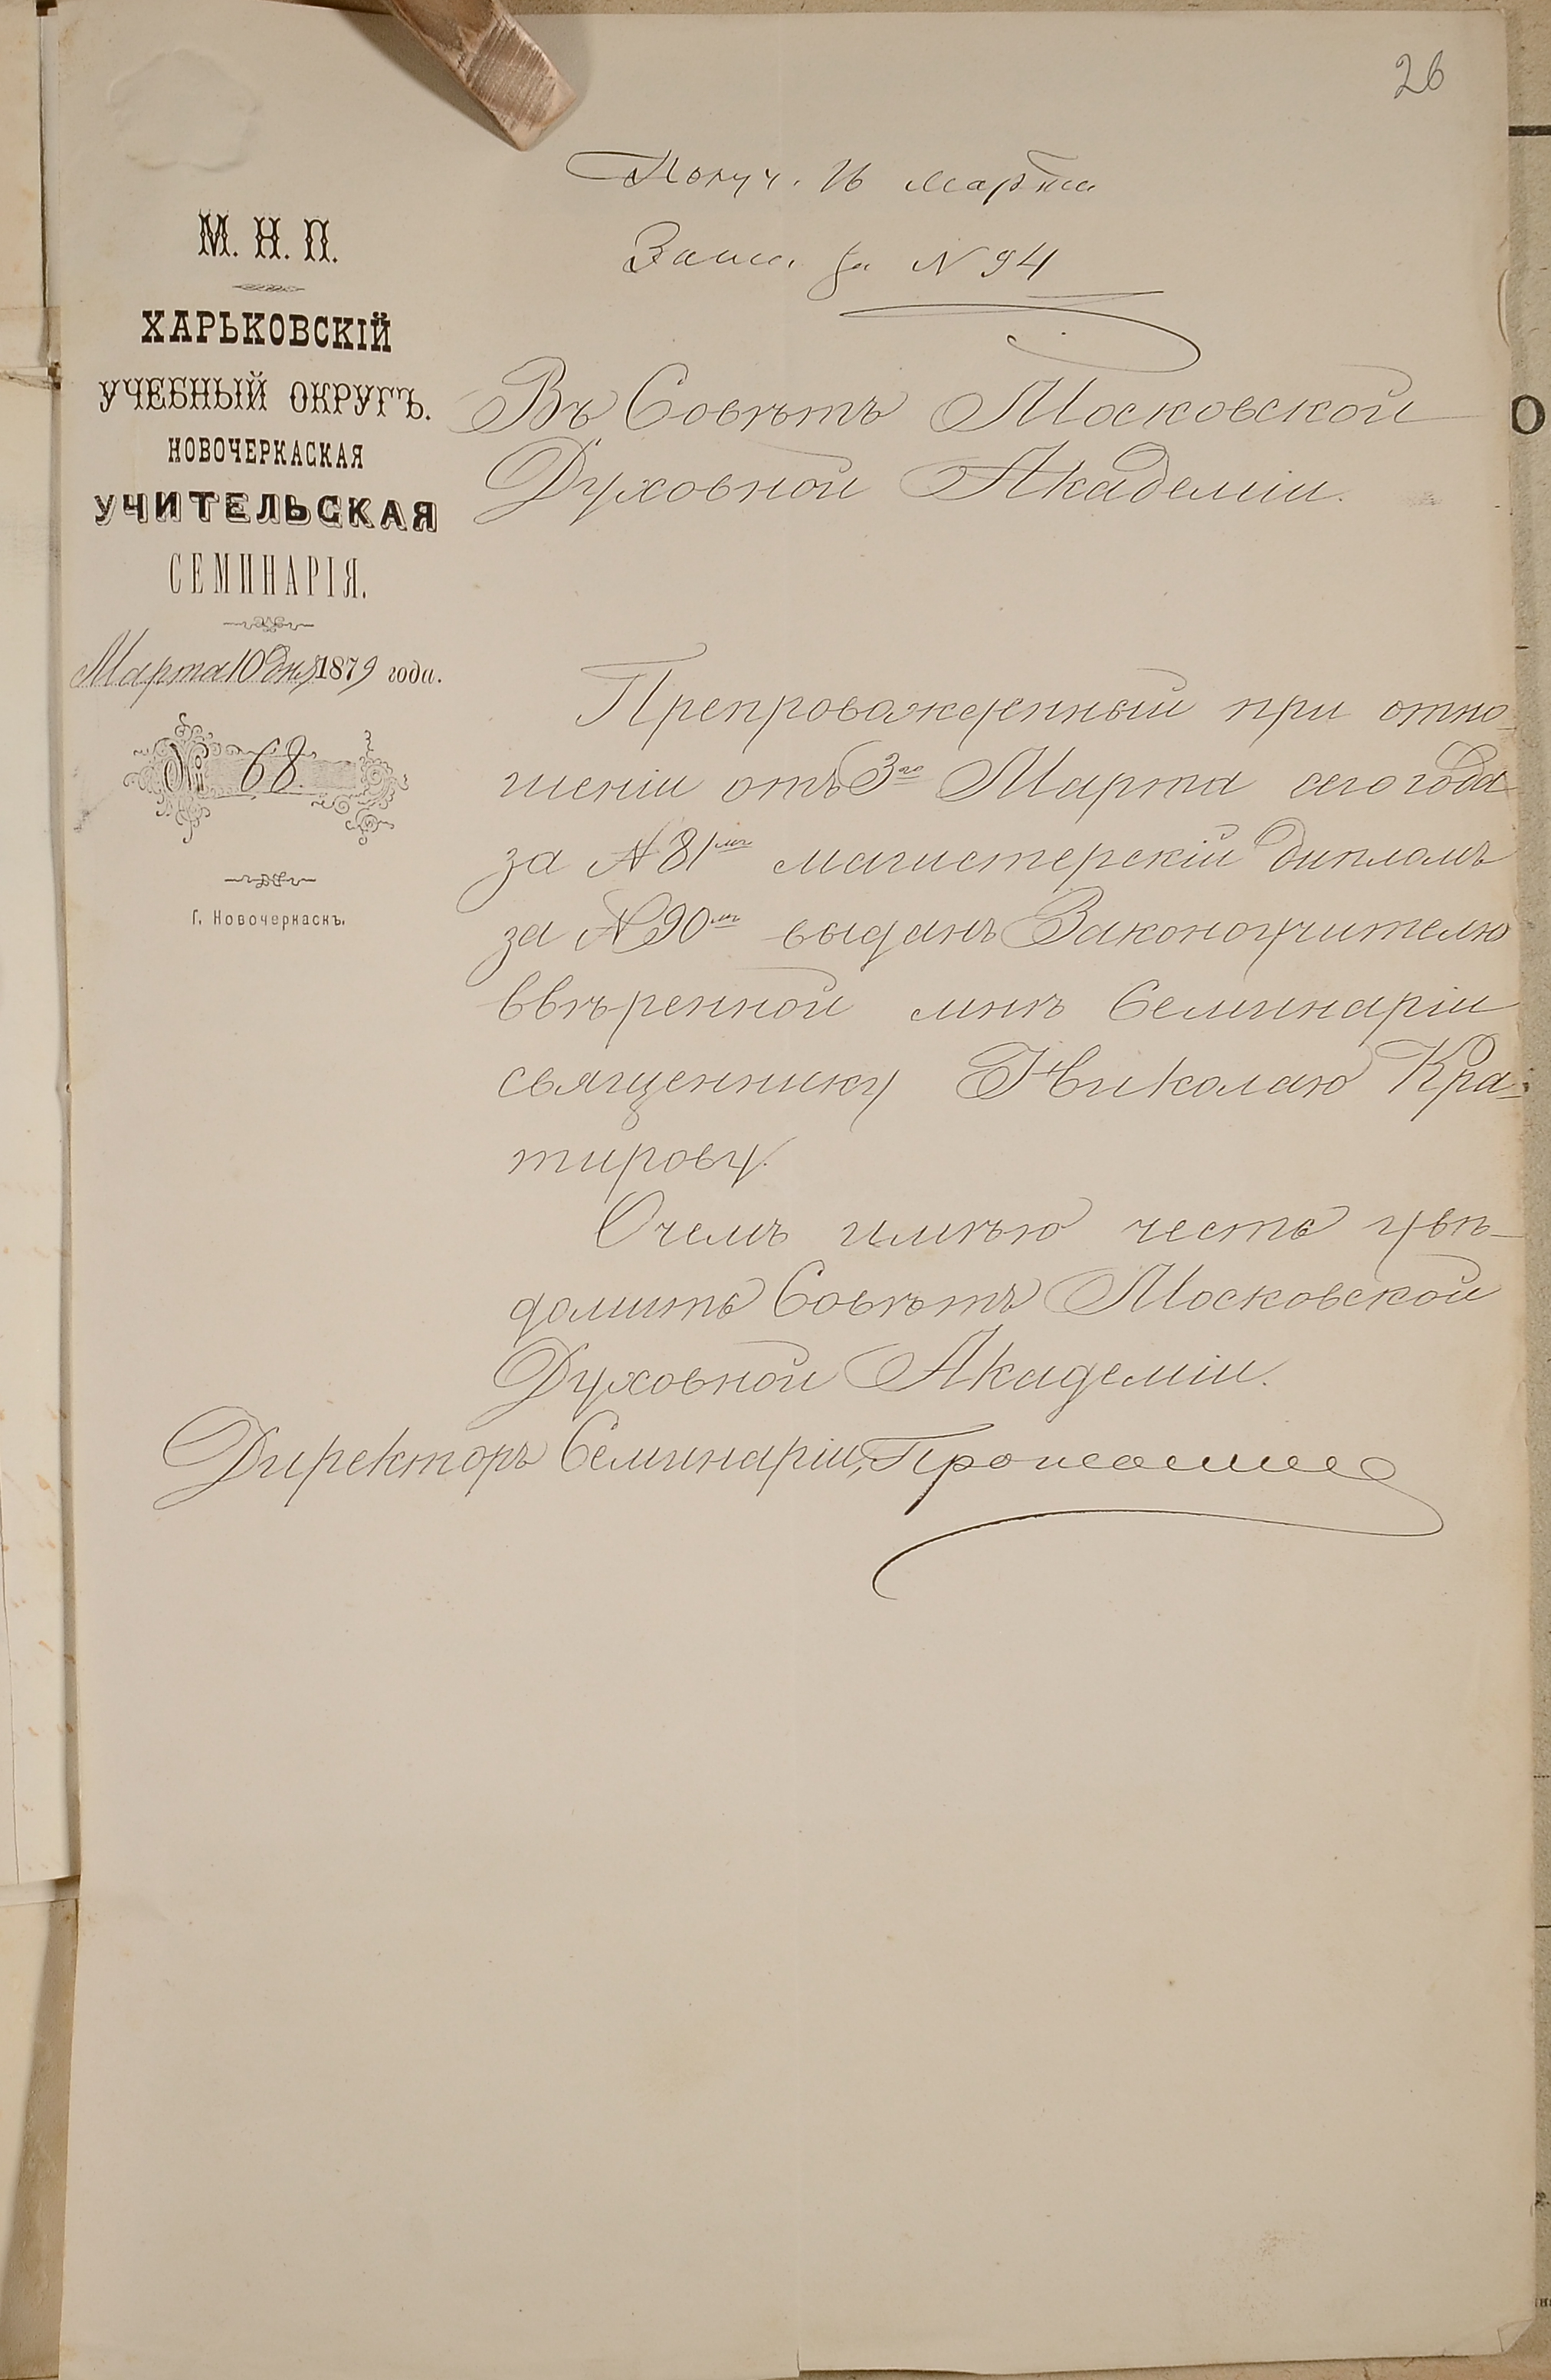 26
Получ. 16 марта
Запис. за N 94
М. Н. П.
ХАРЬКОВСКІЙ
УЧЕБНЫЙ ОКРУГЪ.
НОВОЧЕРКАСКАЯ
УЧИТЕЛЬСКАЯ
СЕМИНАРІЯ.
Марта 10 дня 1879 года.
№ 68.
Г. Новочеркаскъ.
Въ Совѣтъ Московской
Духовной Академіи.
Препровожденный при отно-
шеніи отъ 3го Марта сего года
за N 81мъ магистерскій дипломъ
за N 90мъ выданъ Законоучителю
ввѣренной мнѣ Семинаріи
священнику Николаю Кра-
тирову.
О чемъ имѣю честь увѣ-
домить Совѣтъ Московской
Духовной Академіи.
Директоръ Семинаріи,